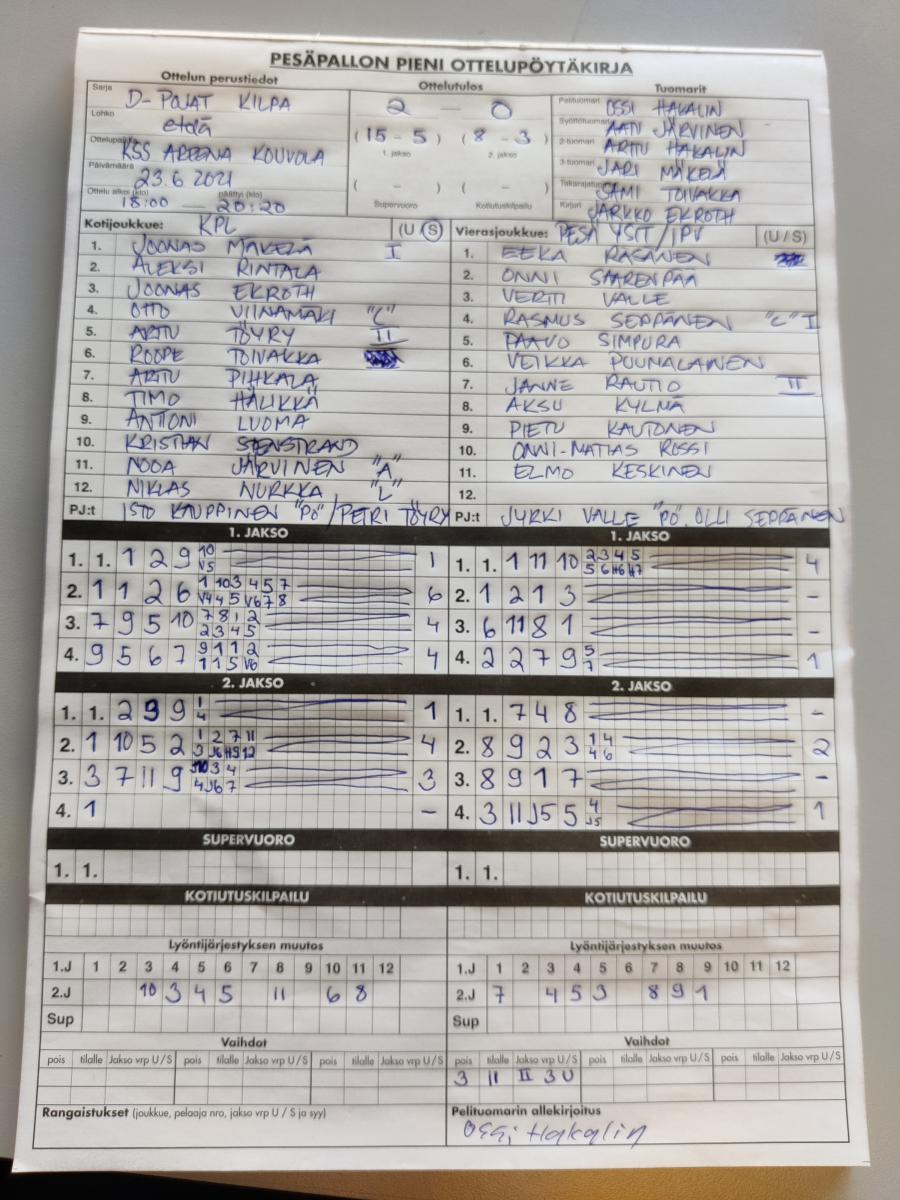 PESÄPALLON PIENI OTTELUPÖYTÄKIRJA
Ottelun perustiedot
Sarja D-POJAT KILPA
Lohko etelä
Ottelupaikka KSS AREENA KOUVOLA
Päivämäärä 23.6 2021
Ottelu alkoi (klo) 18:00 päättyi (klo) 20:20
Ottelutulos
2 — 0
(15 - 5) (8 - 3)
1. jakso 2. jakso
( - ) ( - )
Supervuoro Kotiutuskilpailu
Tuomarit
Pelituomari OSSI HAKALIN
Syöttötuomari AATU JÄRVINEN
2-tuomari ARTTU HAKALIN
3-tuomari JARI MÄKELÄ
Takarajatuomari SAMI TOIVAKKA
Kirjuri JARKKO EKROTH
Kotijoukkue: KPL (U / S)
1. JOONAS MÄKELÄ I
2. ALEKSI RINTALA
3. JOONAS EKROTH
4. OTTO VIINAMÄKI "C"
5. ARTTU TÖYRY II
6. ROOPE TOIVAKKA
7. ARTTU PIHKALA
8. TIMO HÄLIKKÄ
9. ANTONI LUOMA
10. KRISTIAN STENSTRAND
11. NOOA JÄRVINEN "A"
12. NIKLAS NURKKA "L"
PJ:t ISTO KAUPPINEN "PÖ" / PETRI TÖYRY
Vierasjoukkue: PESÄ YSIT/IPV (U / S)
1. EEKA RÄSÄNEN
2. ONNI SAARENPÄÄ
3. VERTTI VALLE
4. RASMUS SEPPÄNEN "C" I
5. PAAVO SIMPURA
6. VEIKKA PUUNALAINEN
7. JANNE RAUTIO II
8. AKSU KYLMÄ
9. PIETU KAUTONEN
10. ONNI-MATIAS ROSSI
11. ELMO KESKINEN
12.
PJ:t JYRKI VALLE "PÖ", OLLI SEPPÄNEN
1. JAKSO
1. 1. 1 2 9 10 V5 1
2. 1 1 2 6 1 10 3 4 5 7 V4 4 5 V6 7 8 6
3. 7 9 5 10 7 8 1 2 2 3 4 5 4
4. 9 5 6 7 9 1 1 2 1 1 5 V6 4
1. JAKSO
1. 1. 1 11 10 2 3 4 5 5 6 H6 H7 4
2. 1 2 1 3 -
3. 6 11 8 1 -
4. 2 2 7 9 5 7 1
2. JAKSO
1. 1. 2 3 9 1 4 1
2. 1 10 5 2 1 2 7 11 3 J6 H9 12 4
3. 3 7 11 9 10 3 4 4 J6 7 3
4. 1 -
2. JAKSO
1. 1. 7 4 8 -
2. 8 9 2 3 1 4 4 6 2
3. 8 9 1 7 -
4. 3 11 J5 5 4 J5 1
SUPERVUORO
1. 1.
SUPERVUORO
1. 1.
KOTIUTUSKILPAILU
KOTIUTUSKILPAILU
Lyöntijärjestyksen muutos
1.J 1 2 3 4 5 6 7 8 9 10 11 12
2.J 10 3 4 5 11 6 8
Sup
Lyöntijärjestyksen muutos
1.J 1 2 3 4 5 6 7 8 9 10 11 12
2.J 7 4 5 3 8 9 1
Sup
Vaihdot
pois tilalle Jakso vrp U/S pois tilalle Jakso vrp U/S pois tilalle Jakso vrp U/S
Vaihdot
pois tilalle Jakso vrp U/S pois tilalle Jakso vrp U/S pois tilalle Jakso vrp U/S
3 11 II 3 U
Rangaistukset (joukkue, pelaaja nro, jakso vrp U / S ja syy)
Pelituomarin allekirjoitus
Ossi Hakalin